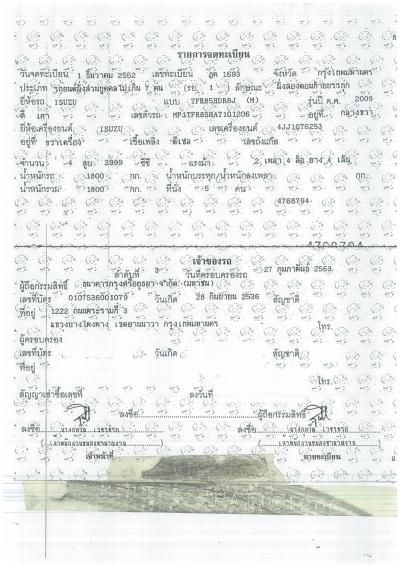 รายการจดทะเบียน
วันจดทะเบียน 1 ธันวาคม 2552 เลขทะเบียน 1693 จังหวัด กรุงเทพมหานคร
ประเภท รถยนต์นั่งส่วนบุคคลไม่เกิน 7 คน (รย. 1 ลักษณะ นั่งสองตอนท้ายบรรทุก
ยี่ห้อรถ ISUZU แบบ TFR85HDR8J (M) รุ่นปี ค.ศ. 2009
สี เทา เลขตัวรถ MP1TFR85HAT101206 อยู่ที่ กลางขวา
ยี่ห้อเครื่องยนต์ ISUZU เลขเครื่องยนต์ 4JJ1GT6253
อยู่ที่ ขวาเครื่อง เชื้อเพลิง ดีเซล เลขถังแก๊ส
จำนวน 4 สูบ 2999 ซีซี แรงม้า 2 เพลา 4 ล้อ ยาง 4 เส้น
น้ำหนักรถ 1800 กก. น้ำหนักบรรทุก/น้ำหนักลงเพลา กก.
น้ำหนักรวม 1800 กก. ที่นั่ง 5 คน
4768794
เจ้าของรถ
ลำดับที่ 3 วันที่ครอบครองรถ 27 กุมภาพันธ์ 2563
ผู้ถือกรรมสิทธิ์ ธนาคารกรุงศรีอยุธยา จำกัด (มหาชน)
เลขที่บัตร 0107536001079 วันเกิด 28 กันยายน 2536 สัญชาติ
ที่อยู่ 1222 ถนนพระรามที่ 3
แขวงบางโพงพาง เขตยานนาวา กรุงเทพมหานคร โทร.
ผู้ครอบครอง
เลขที่บัตร วันเกิด สัญชาติ
ที่อยู่
โทร.
สัญญาเช่าซื้อเลขที่ ลงวันที่
ลงชื่อ ผู้ถือกรรมสิทธิ์
ลงชื่อ ลงชื่อ
เจ้าหน้าที่ นายทะเบียน